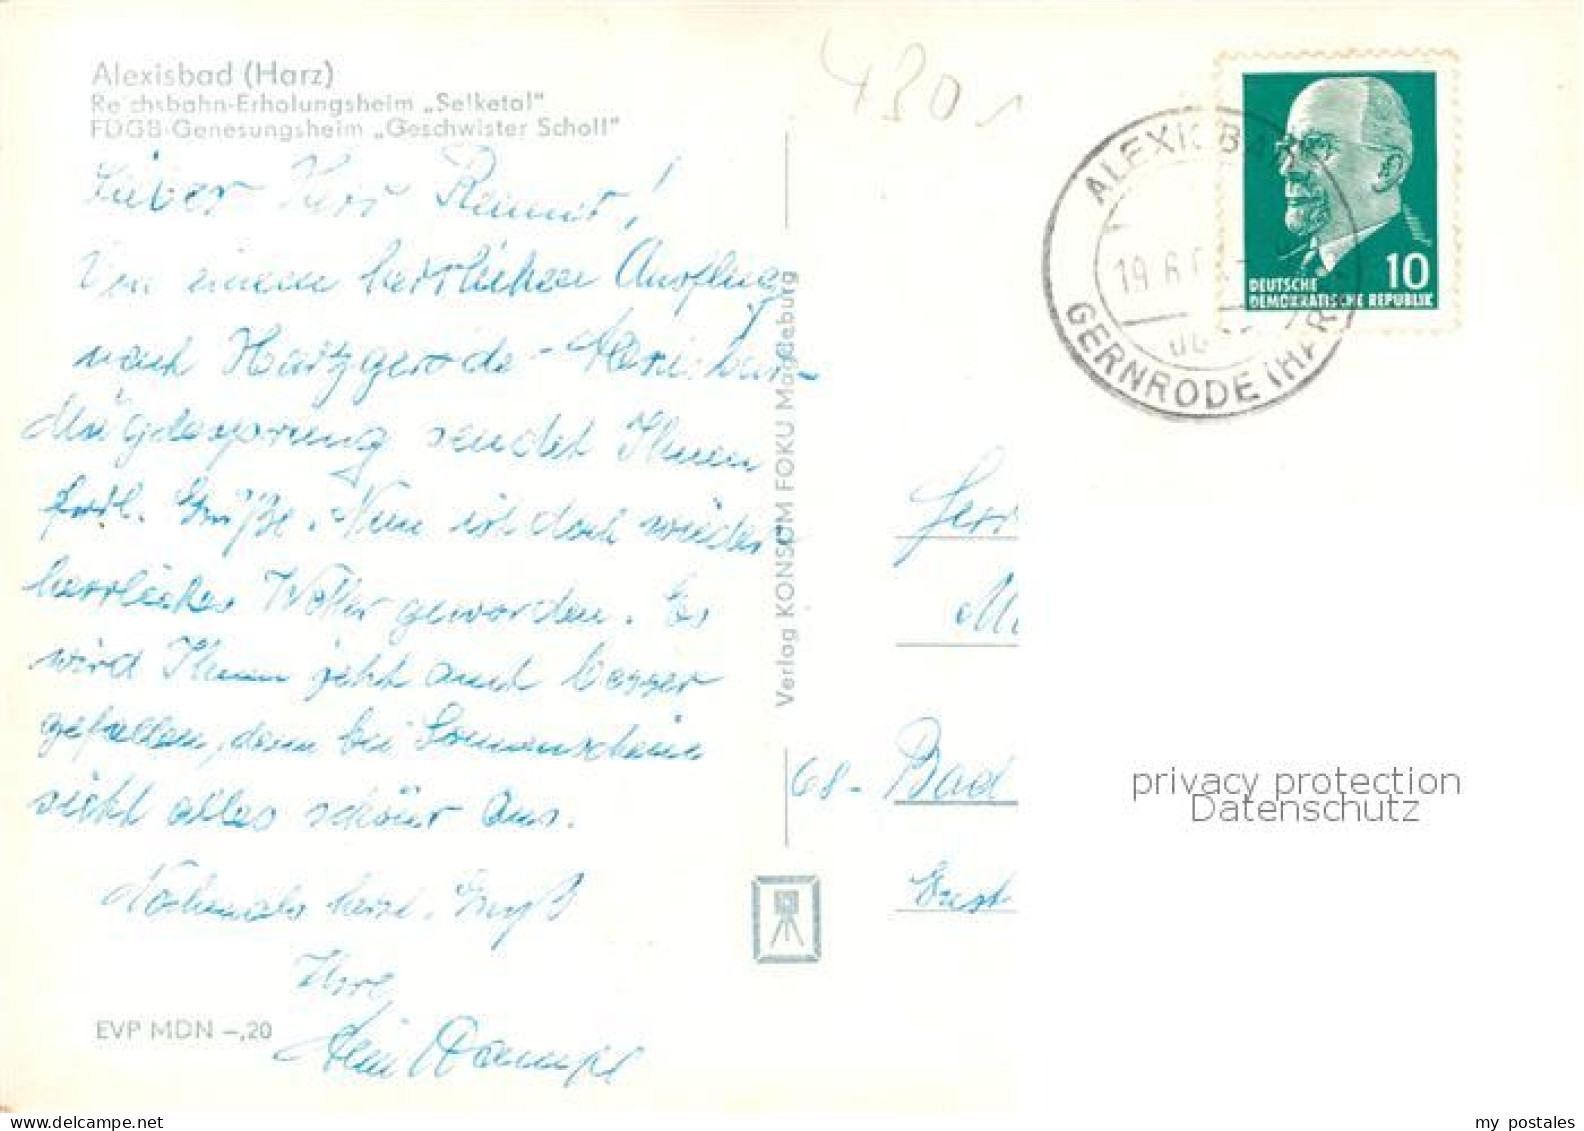 Alexisbad (Harz)
Reichsbahn-Erholungsheim „Selketal"
FDGB-Genesungsheim „Geschwister Scholl"
Lieber Herr
Von einem herrlichen Ausflug
nach Harzgerode - Alexisbad-
Mägdesprung sendet Ihnen
frdl. Grüße. Nun ist doch wieder
herrliches Wetter geworden. Es
wird Ihnen jetzt auch besser
gefallen, denn bei Sonnenschein
sieht alles schöner aus.
Nochmals herzl. Gruß
Ihre
EVP MDN –,20
Verlag KONSUM FOKU Magdeburg
430
ALEXISBAD
19.6.6
GERNRODE (HARZ)
10
DEUTSCHE
DEMOKRATISCHE REPUBLIK
68 - Bad
Ernst
privacy protection
Datenschutz
my postales